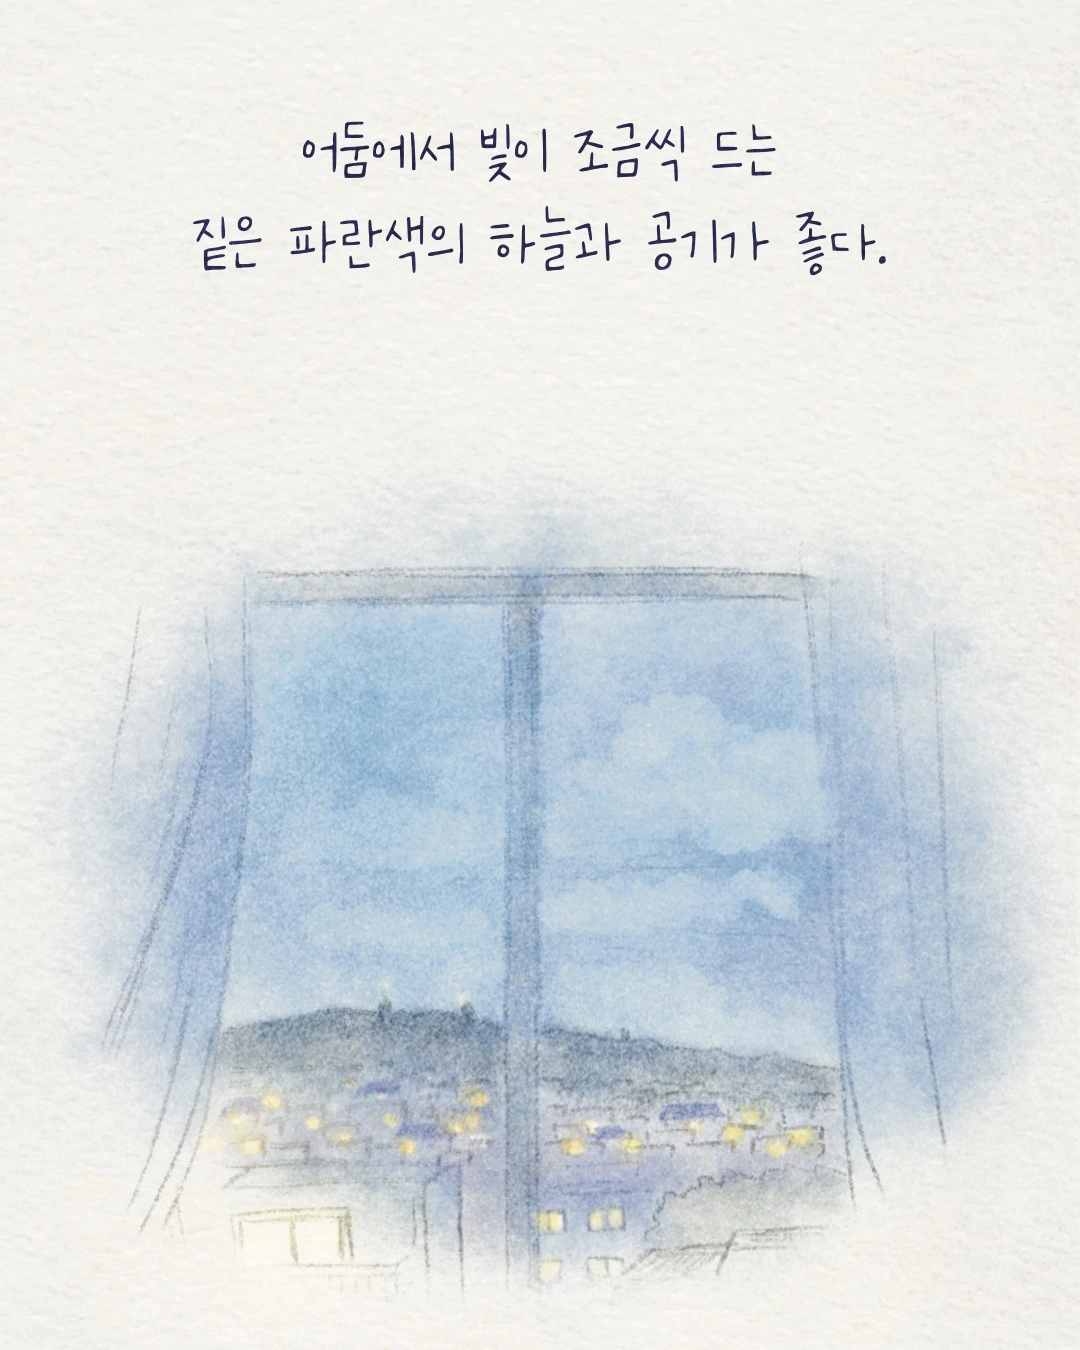 어둠에서 빛이 조금씩 드는
짙은 파란색의 하늘과 공기가 좋다.